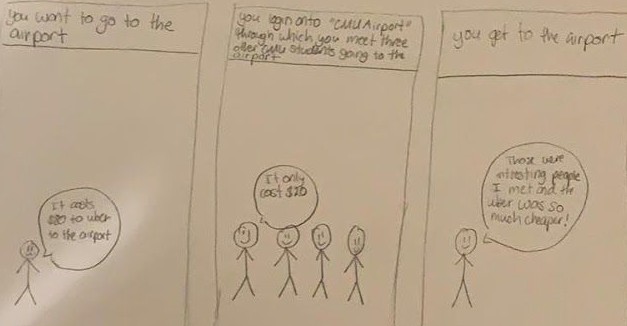 you want to go to the
airport
It costs
$80 to uber
to the airport
you login onto "CMU Airport"
through which you meet three
other CMU students going to the
airport
It only
cost $20
you get to the airport
Those were
intresting people
I met and the
uber was so
much cheaper!